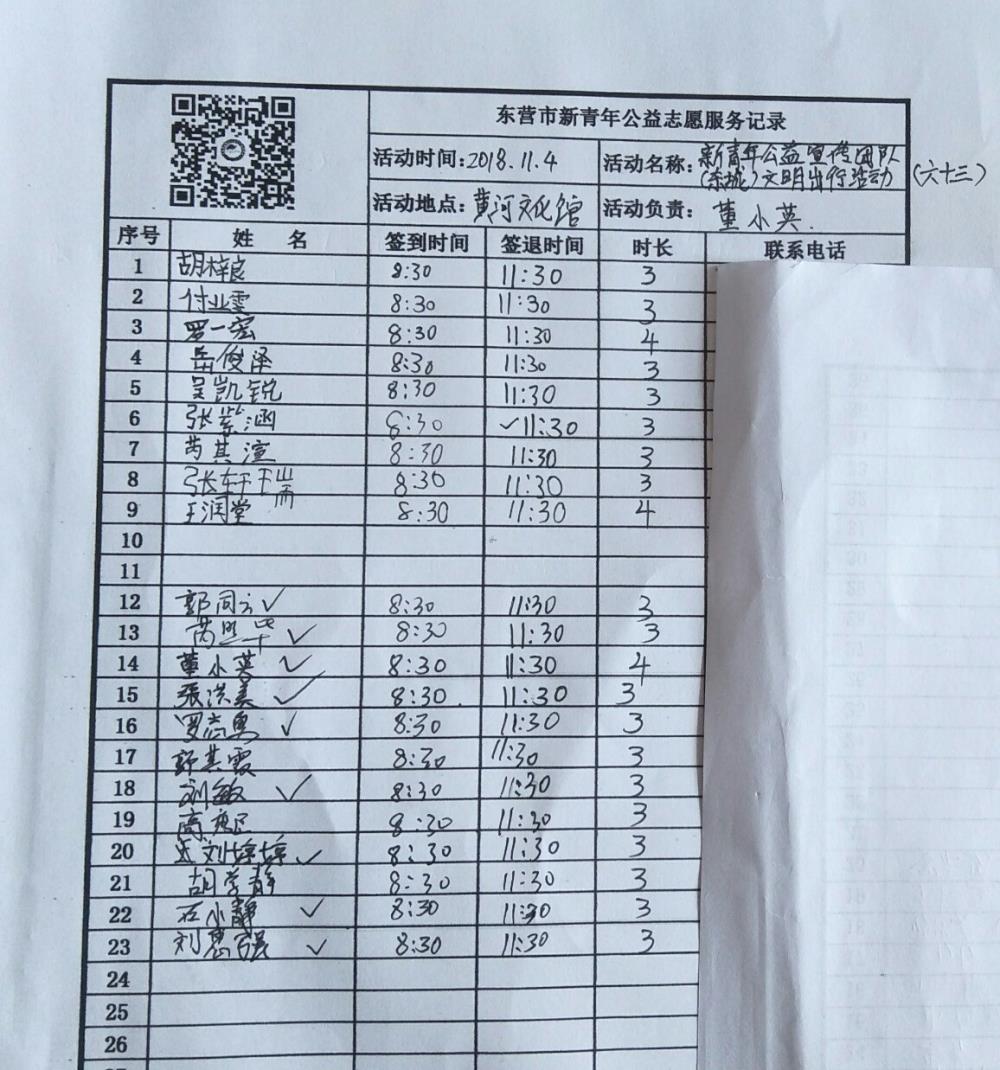 东营市新青年公益志愿服务记录
活动时间:2018.11.4 活动名称:新青年公益宣传团队
(东城)文明出行活动(六十三)
活动地点:黄河文化馆 活动负责:董小英
序号 姓名 签到时间 签退时间 时长 联系电话
1 胡梓良 8:30 11:30 3
2 付业雯 8:30 11:30 3
3 罗一宏 8:30 11:30 4
4 岳俊泽 8:30 11:30 3
5 吴凯锐 8:30 11:30 3
6 张紫涵 8:30 ✓11:30 3
7 芮其渲 8:30 11:30 3
8 张轩瑞 8:30 11:30 3
9 王润堂 8:30 11:30 4
10
11
12 郭同方✓ 8:30 11:30 3
13 ✓ 8:30 11:30 3
14 董小英✓ 8:30 11:30 4
15 張洪美✓ 8:30 11:30 3
16 罗志勇✓ 8:30 11:30 3
17 8:30 11:30 3
18 刘敏✓ 8:30 11:30 3
19 8:30 11:30 3
20 刘婷婷✓ 8:30 11:30 3
21 胡学静 8:30 11:30 3
22 石小静✓ 8:30 11:30 3
23 刘惠强✓ 8:30 11:30 3
24
25
26